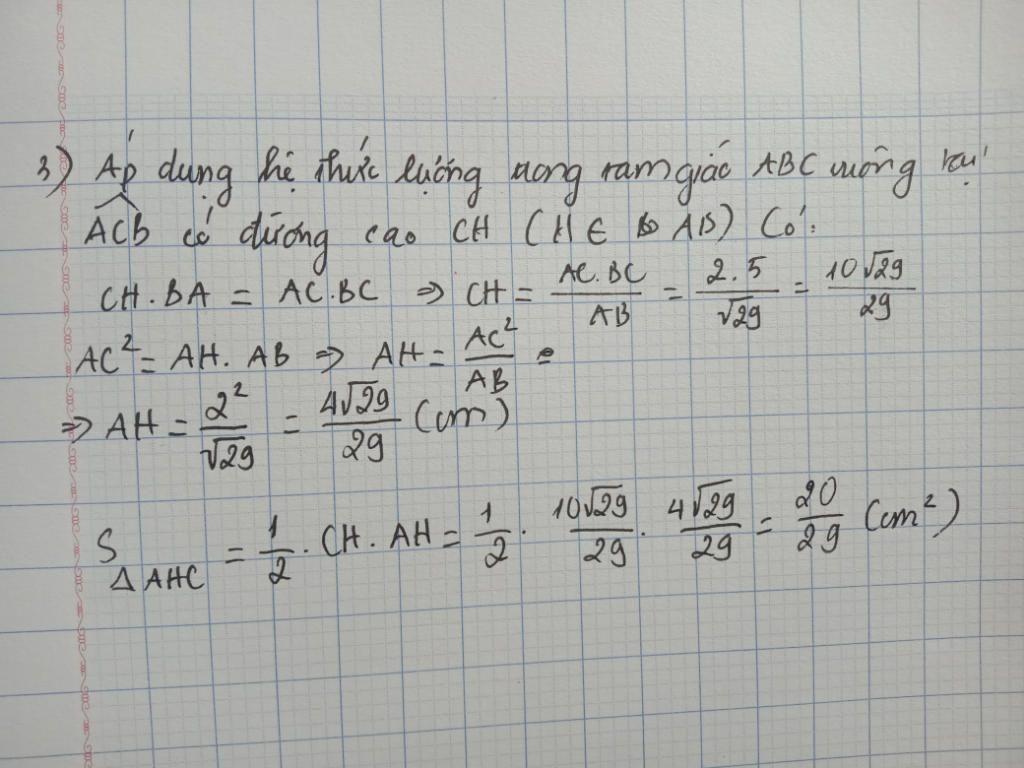 3) Áp dụng hệ thức lượng trong tam giác ABC vuông tại
ACB có đường cao CH (H ∈ AB) Có:
CH.BA = AC.BC ⇒ CH = AC.BC / AB = 2.5 / √29 = 10√29 / 29
AC² = AH. AB ⇒ AH = AC² / AB =
⇒ AH = 2² / √29 = 4√29 / 29 (cm)
S ΔAHC = 1/2 . CH. AH = 1/2 . 10√29 / 29 . 4√29 / 29 = 20 / 29 (cm²)